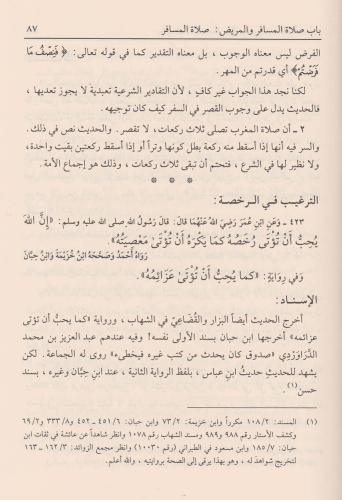 باب صلاة المسافر والمريض: صلاة المسافر
٨٧
الفرض ليس معناه الوجوب، بل معناه التقدير كما في قوله تعالى: ﴿ فَنِصْفُ مَا
فَرَضْتُمْ﴾ أي قدرتم من المهر.
لكنا نجد هذا الجواب غير كافٍ، لأن التقادير الشرعية تعبدية لا يجوز تعديها،
فالحديث يدل على وجوب القصر في السفر كيف كان توجيهه.
٢ ـ أن صلاة المغرب تصلى ثلاث ركعات، لا تقصر. والحديث نص في ذلك.
والسر فيه أنها إذا أسقط منه ركعة بطل كونها وتراً أو إذا أسقط ركعتين بقيت واحدة،
ولا نظير لها في الشرع، فتحتم أن تبقى ثلاث ركعات، وذلك هو إجماع الأمة.
* * *
الترغيب فـي الـرخصـة:
٤٢٣ ـ وَعَنِ ابْنِ عُمَرَ رَضِيَ اللهُ عَنْهُمَا قَالَ: قَالَ رَسُولُ اللهِ صلى الله عليه وسلم: «إنَّ اللهَ
يُحِبُّ أَنْ تُؤْتَى رُخَصُهُ كَمَا يَكْرَهُ أَنْ تُؤْتَى مَعْصِيَتُهُ».
رَوَاهُ أَحْمَدُ وَصَحَّحَهُ ابْنُ خُزَيْمَةَ وَابْنُ حِبَّانَ
وَفي رِوَايَةٍ: «كما يُحِبُّ أَنْ تُؤْتَى عَزَائِمُهُ».
الإسـناد:
أخرج الحديث أيضاً البزار والقُضَاعِيّ في الشهاب، ورواية «كما يحبُّ أن تؤتى
عزائمه» أخرجها ابن حبان بسند الأولى نفسه! وفيه عندهم عبد العزيز بن محمد
الدَّرَاوَرْدِي «صدوق كان يحدث من كتب غيره فيخطىء» روى له الجماعة. لكن
يشهد للحديث حديثُ ابن عباس، بلفظ الرواية الثانية، عند ابن حِبَّان وغيره، بسند
حسن(١).
(١) المسند: ١٠٨/٢ مكرراً وابن خزيمة: ٧٣/٢ وابن حبان: ٤٥١/٦ ـ ٤٥٢ و٣٣٣/٨ و٦٩/٢
وكشف الأستار رقم ٩٨٨ و٩٨٩ ومسند الشهاب رقم ١٠٧٨ وانظر شاهداً عن عائشة في ثقات ابن
حبان: ١٨٥/٧ وابن مسعود في الطبراني (١٠٠٣٠) وانظر مجمع الزوائد: ١٦٢/٣ ـ ١٦٣
لتخريج شواهد له ، وهو بهذا يرقى إلى الصحة بروايتيه ، والله أعلم.